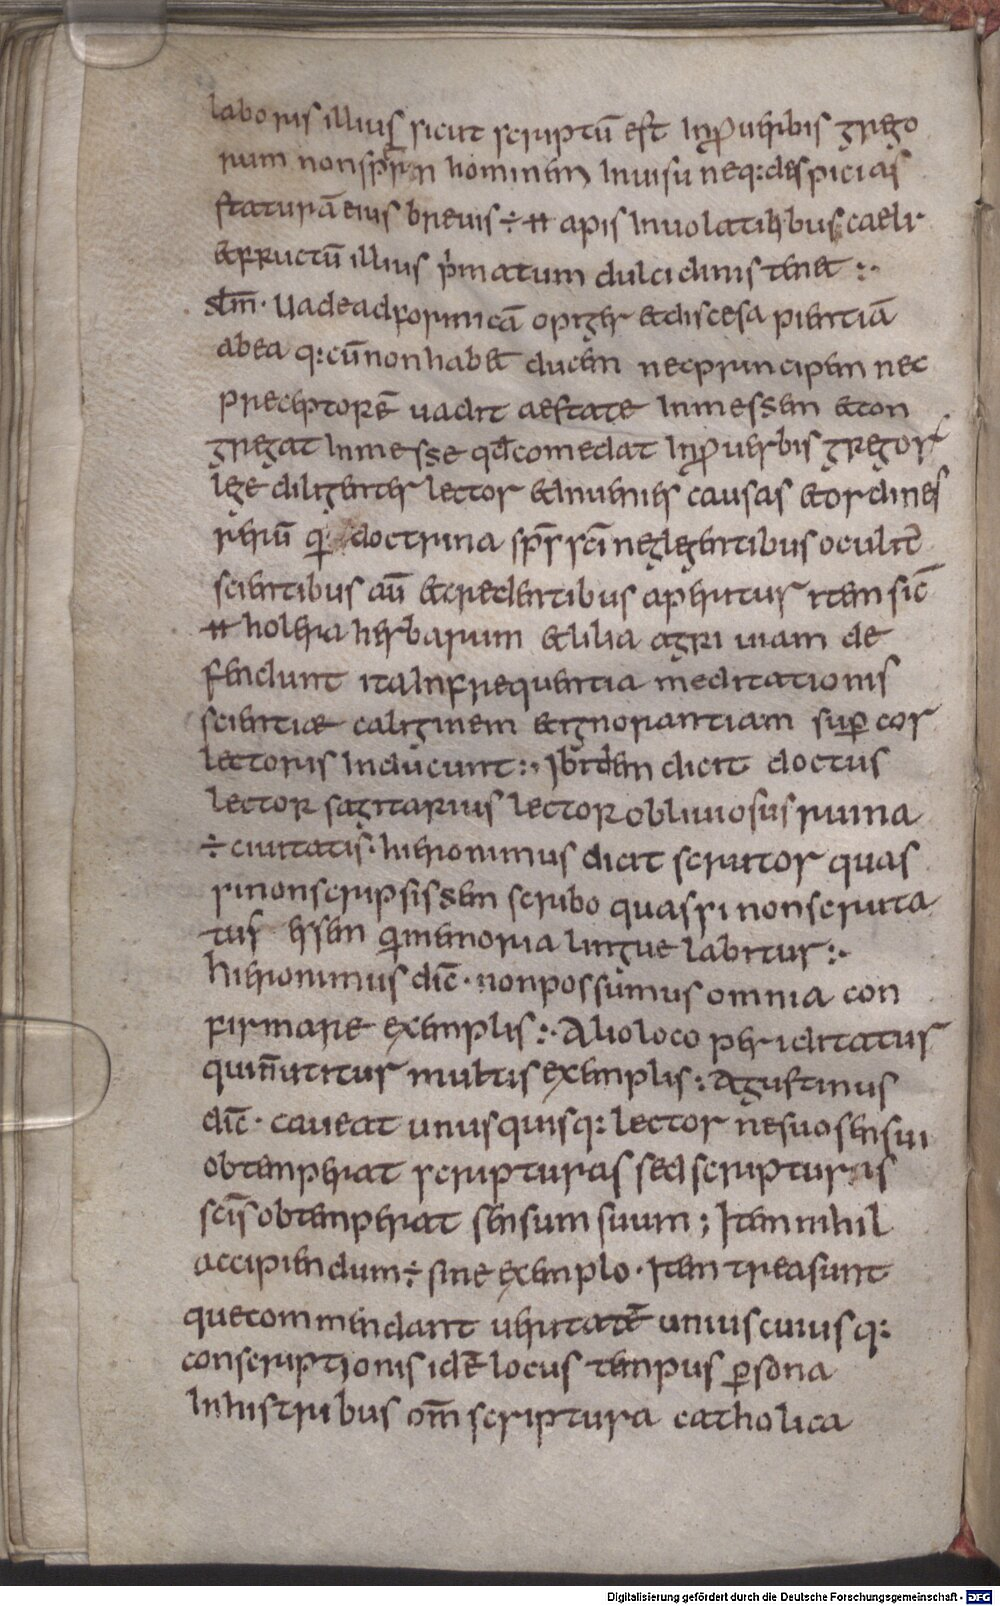 laboris illius sicut scriptū est Inꝓueribis grego
rum non spernin hominem Inuisu neq: despicias
staturā eius breuis ÷ ħ apis Inuolatilibus caeli
&fructū illius pͥmatum dulcidinis ten& :·
slm̄· Uade ad formicā o piger &disce sapientiā
ab ea q: cū non hab& ducem nec principem nec
preceptorē uadit aestate Inmessem &con
gregat Inmesse qđ comedat Inꝓuerbis gregor
lege diligenter lector &Inuenies causas &ordines
rerū q doctrina spr̄s sc̄i neglegentibus oculit̄
scientibus aū &credentibus aperitur item sic̄
ħ holera herbarum &lilia agri uiam de
fendunt ita Infrequentia meditationis
scientiae caliginem &ignorantiam suꝑ cor
lectoris Inducunt :· Ibidem dicit doctus
lector sagitarius lector obliuiosus ruina
÷ ciuitatis· hieronimus dicit scrutor quas
si non scripsissem scribo quassi non scruta
tus essem q memoria lingue labitur :·
hieronimus dic̄· non possumus omnia con
firmare exemplis :· Alio loco per iditatur
qui n̄ utitur multis exemplis : Agustinus
dic̄· caueat unusquisq: lector ne suo sensui
obtemperat scripturas sed scripturis
scīs obtemperat sensum suum ; Item nihil
accipiendum ÷ sine exemplo· Item trea sunt
que commendant ueritatē uniuscuiusq:
conscriptionis idē locus tempus ꝑsona
In histribus om̄ scriptura catholica
Digitalisierung gefördert durch die Deutsche Forschungsgemeinschaft - DFG